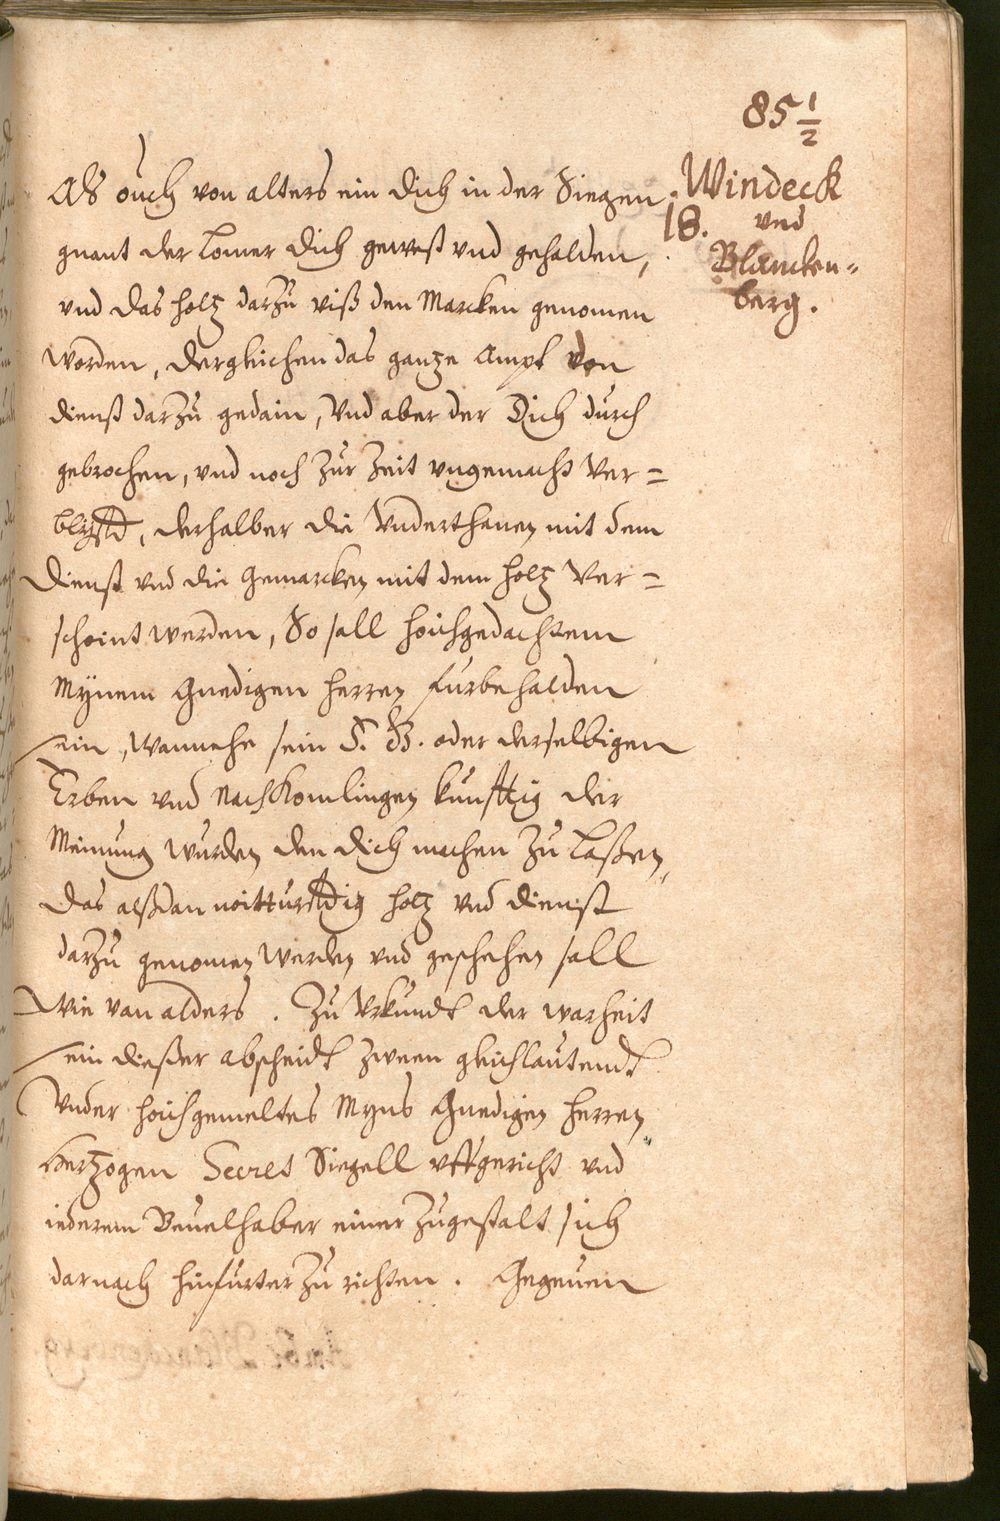 85 1/2
Windeck
18. vnd
Blancken-
berg.
Als ouch von alters ein Dich in der Siegen
gnant der Lomer Dich gewest vnd gehalden,
vnd das holtz darzu viß den Marcken genomen
worden, dergleichen das gantze Ampt den
dienst darzu gedain, Vnd aber der Dich durch
gebrochen, vnd noch zur Zeit vngemacht Ver=
blyfft, derhalber die Vnderthanen mit dem
Dienst vnd die Gemarcken mit dem holtz Ver=
schoint werden, So sall hoichgedachtem
Mÿnem Gnedigen herren furbehalden
sein, Wannehe sein F. G. oder derselbigen
Erben vnd Nachkomlingen kunfftig der
Meinung wurden den Dich machen zu Laßen,
Das alßdan noitturfftig holtz vnd Dienst
darzu genomen werden vnd geschehen sall
Wie van alders. Zu Vrkundt der warheit
sein dießer abscheidt zween gleichlautendt
Vnder hoichgemeltes Myns Gnedigen herren
Hertzogen Secret Siegell vffgericht vnd
iederem Beuelhaber einer zugestalt sich
darnach hinfurter zu richten. Gegeuen